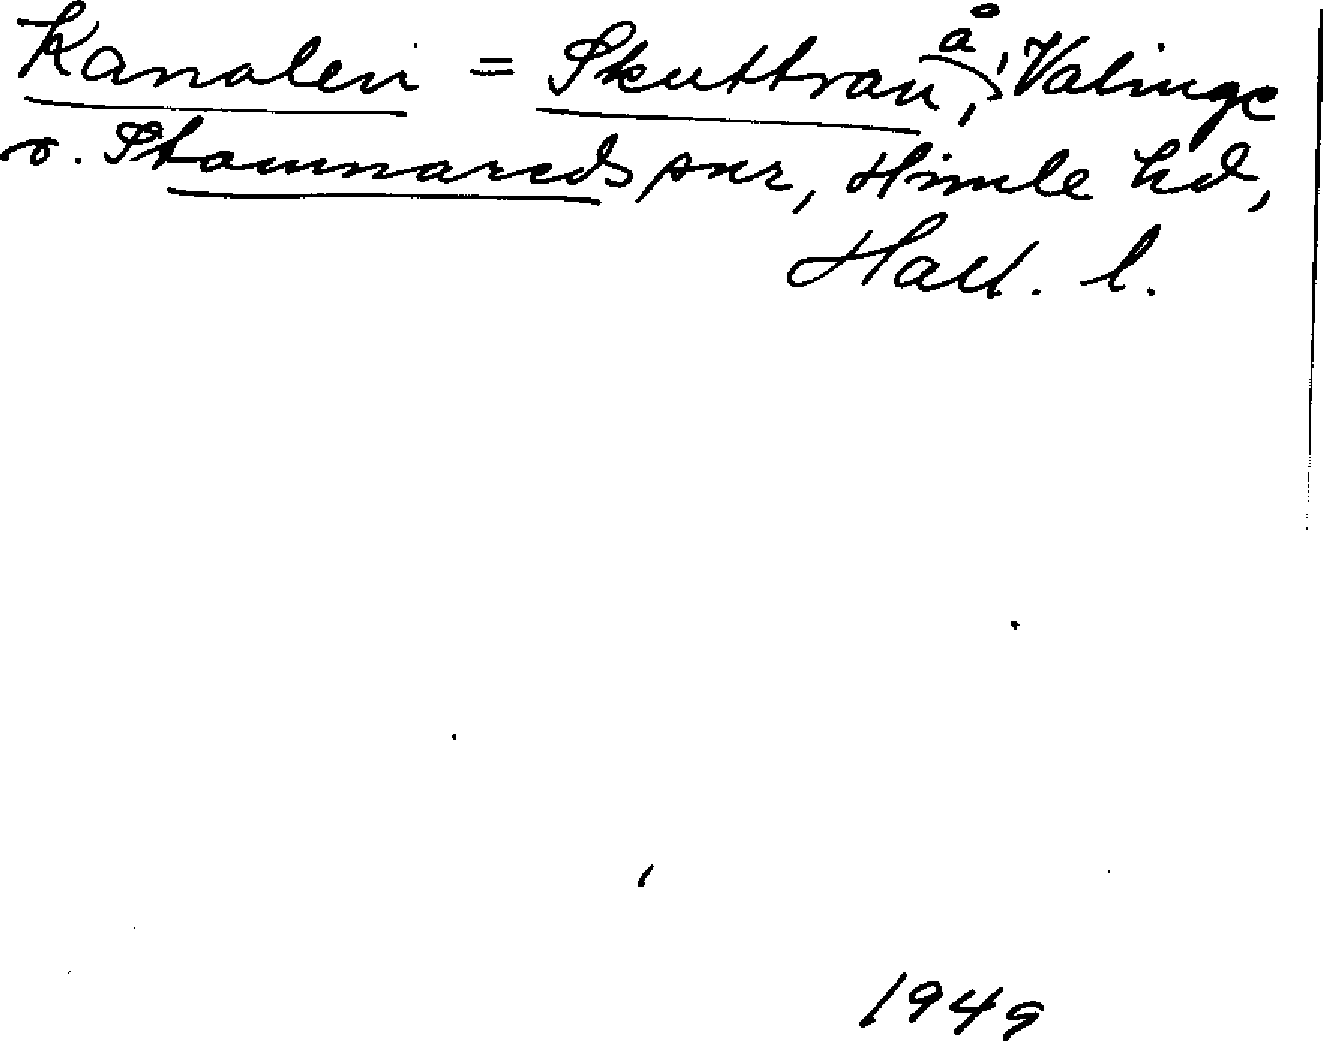 Kanalen = Skuttran, å, i Valinge
o. Stamnareds snr, Himle hd,
Hall. l.
1949